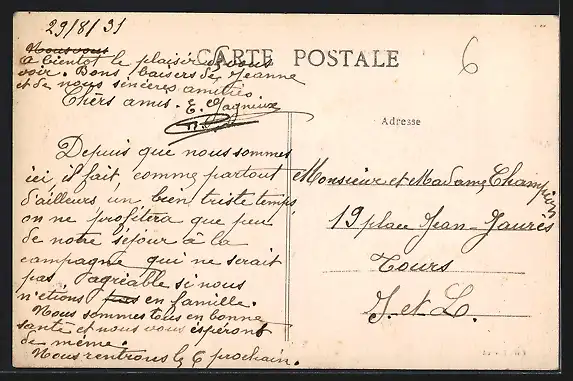 29/8/31
Nous vous
A bientot le plaisir de vous
voir. Bons baisers de Jeanne
et de nous sincères amitiés
Chèrs amis. E. Gagnieux
CARTE POSTALE
6
Adresse
Depuis que nous sommes
ici il fait, comme partout
d'ailleurs, un bien triste temps,
on ne profitera que peu
de notre séjour à la
campagne qui ne serait
pas agréable si nous
n'étions pas en famille.
Nous sommes tous en bonne
santé et nous vous espéront
de même.
Nous rentrons le 6 prochain.
Monsieur et Madame Champion
19 place Jean-Jaurès
Tours
I. et L.